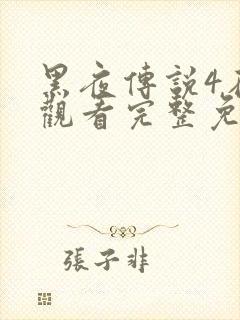 黑夜傳説4
觀看完整免
張子非